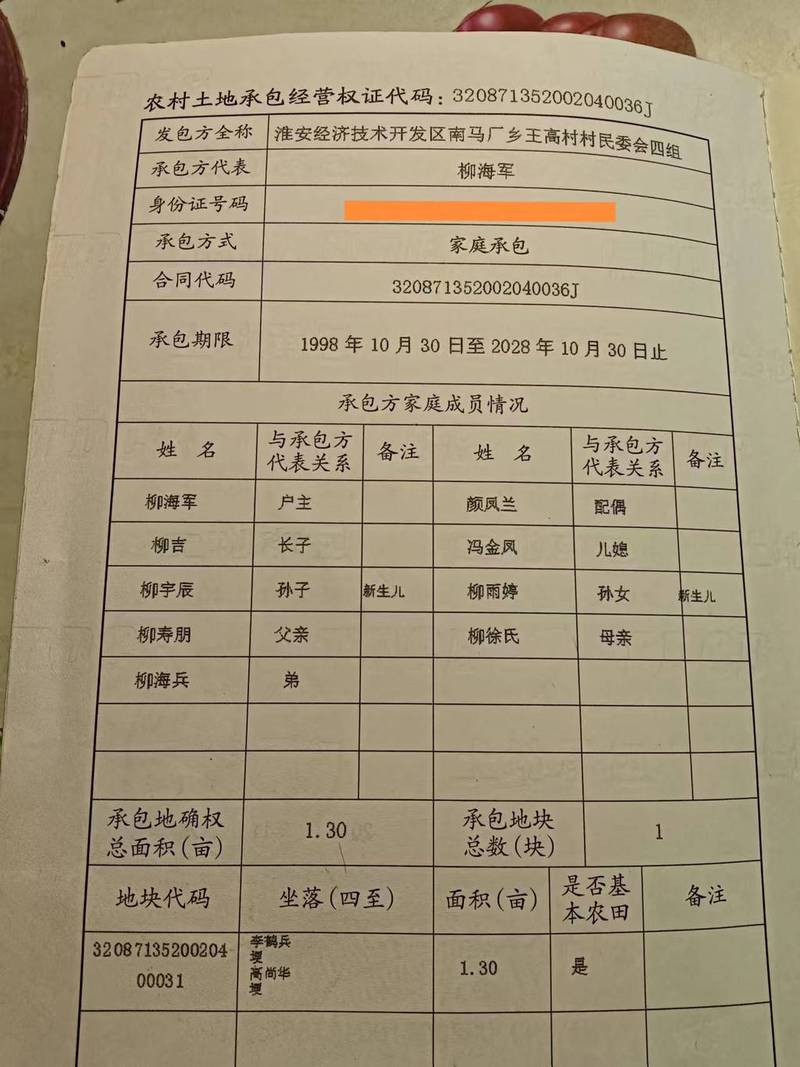 农村土地承包经营权证代码：320871352002040036J
发包方全称 淮安经济技术开发区南马厂乡王高村村民委会四组
承包方代表 柳海军
身份证号码
承包方式 家庭承包
合同代码 320871352002040036J
承包期限 1998 年 10 月 30 日至 2028 年 10 月 30 日止
承包方家庭成员情况
姓 名 与承包方代表关系 备注 姓 名 与承包方代表关系 备注
柳海军 户主 颜凤兰 配偶
柳吉 长子 冯金凤 儿媳
柳宇辰 孙子 新生儿 柳雨婷 孙女 新生儿
柳寿朋 父亲 柳徐氏 母亲
柳海兵 弟
承包地确权总面积(亩) 1.30 承包地块总数(块) 1
地块代码 坐落(四至) 面积(亩) 是否基本农田 备注
3208713520020400031 李鹤兵埂高尚华埂 1.30 是